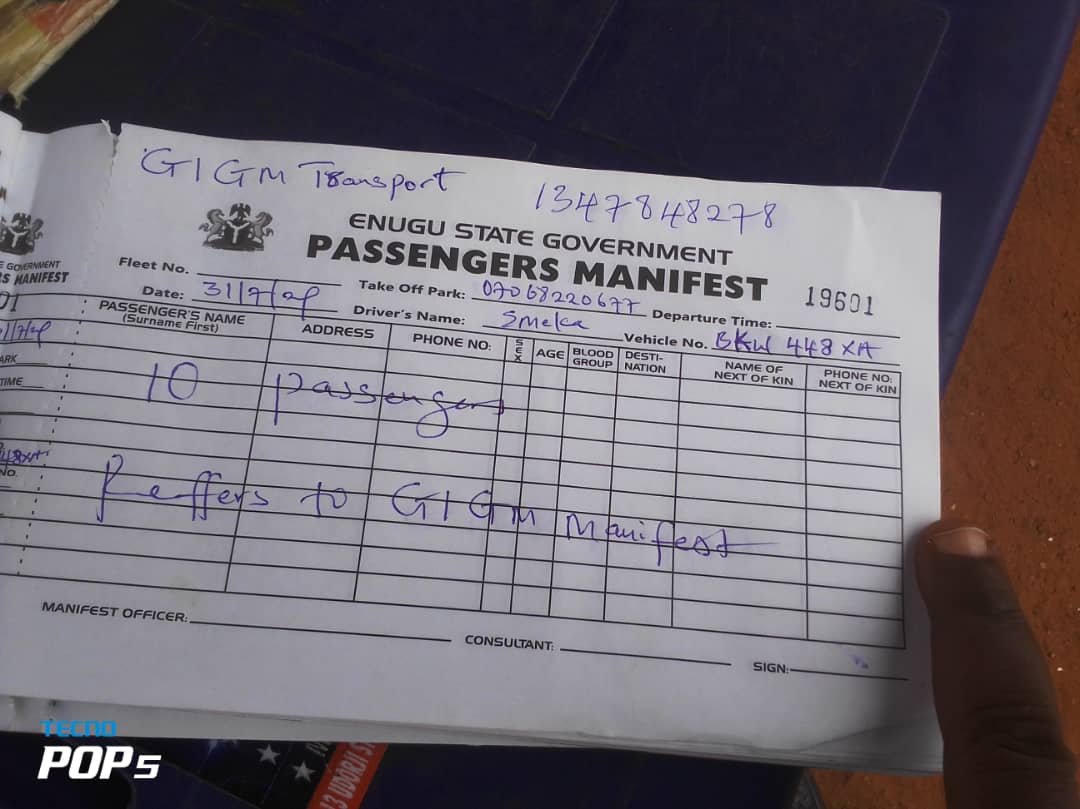 GIGM Transport 1347848278
ENUGU STATE GOVERNMENT
PASSENGERS MANIFEST
19601
Fleet No.
Take Off Park: 07068220677
Departure Time:
Date: 31/7/24
Driver's Name: Emeka
Vehicle No. BKW 448 XA
PASSENGER'S NAME (Surname First)
ADDRESS
PHONE NO:
SEX
AGE
BLOOD GROUP
DESTI-NATION
NAME OF NEXT OF KIN
PHONE NO: NEXT OF KIN
10 passengers
Reffers to GIGM Manifest
MANIFEST OFFICER:
CONSULTANT:
SIGN:
TECNO
POP5